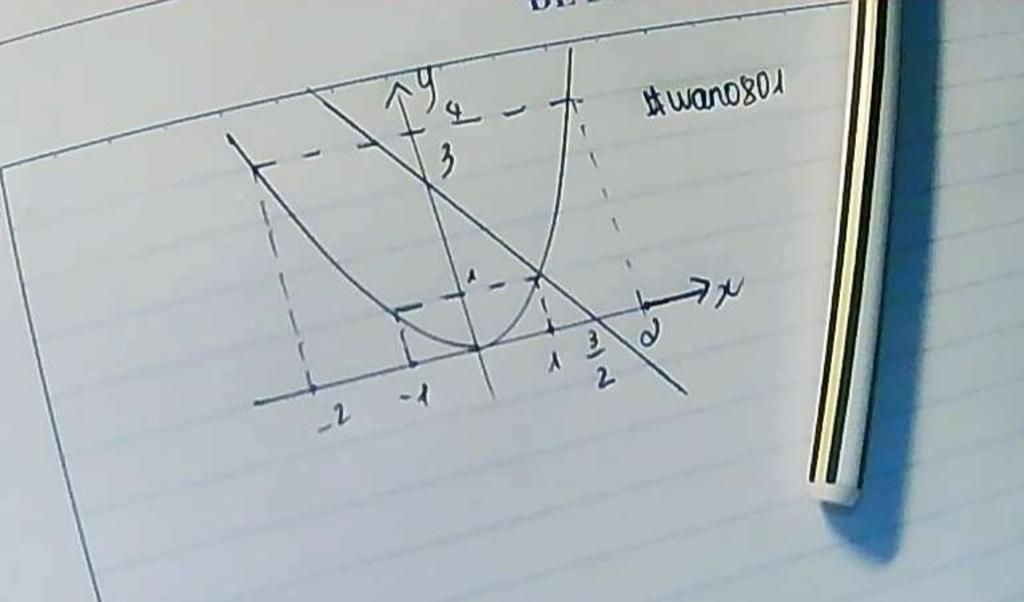 y
4
#wano801
3
1
x
-2
-1
1
3
2
2